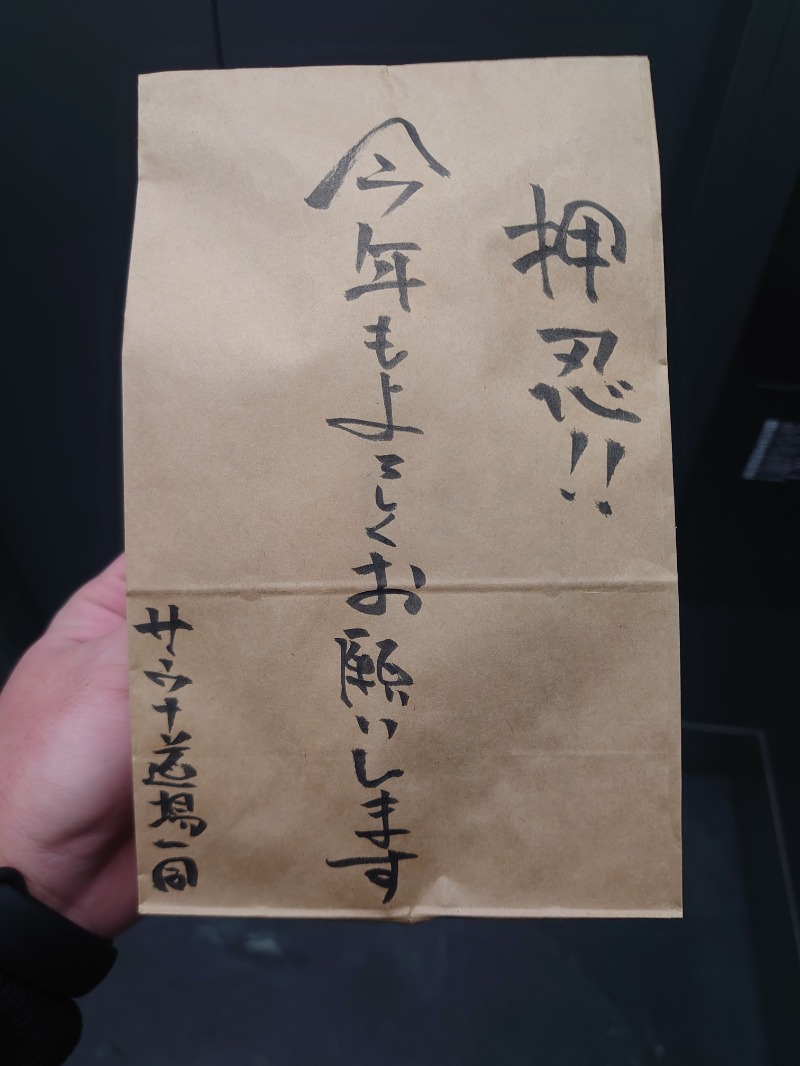 押忍!!
今年もよろしくお願いします
サウナ道場一同